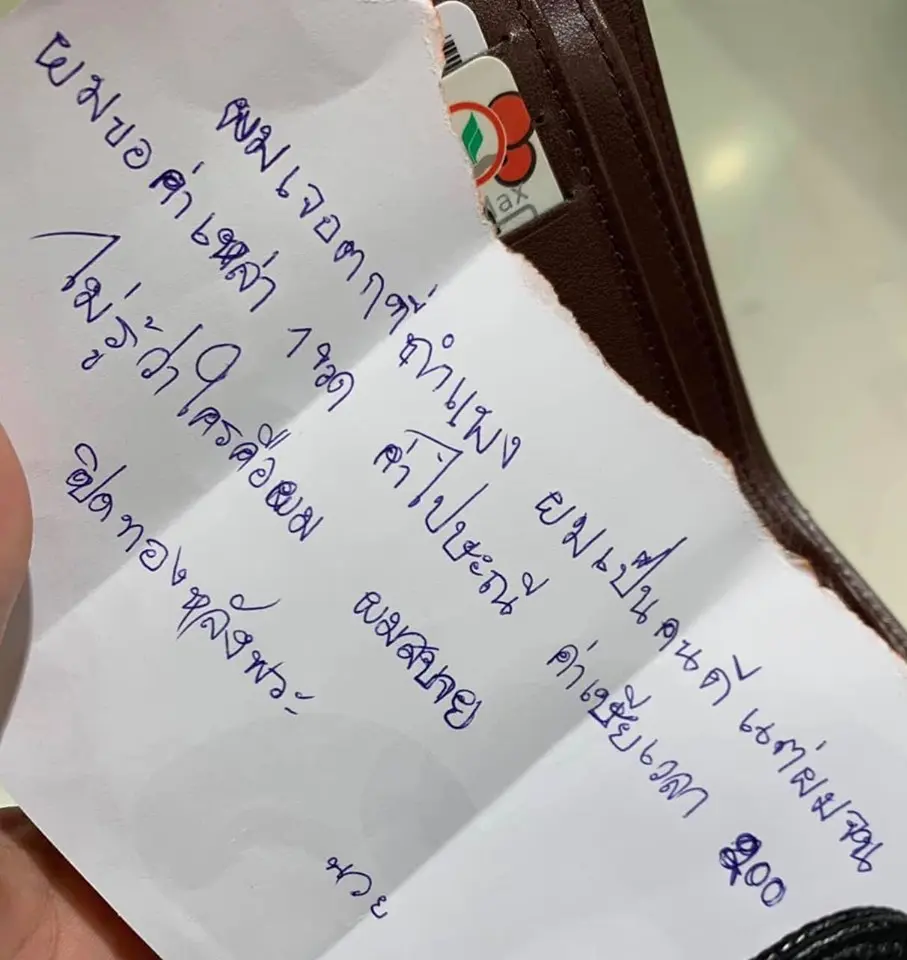 ผมเจอตกที่กำแพง ผมเป็นคนดี แต่ผมจน
ผมขอค่าเหล้า 1 ขวด ค่าไปษะณี ค่าเสียเวลา 200
ไม่รู้ว่าใครคือผม ผมสบาย
ปิดทองหลังพระ
นวย
Max